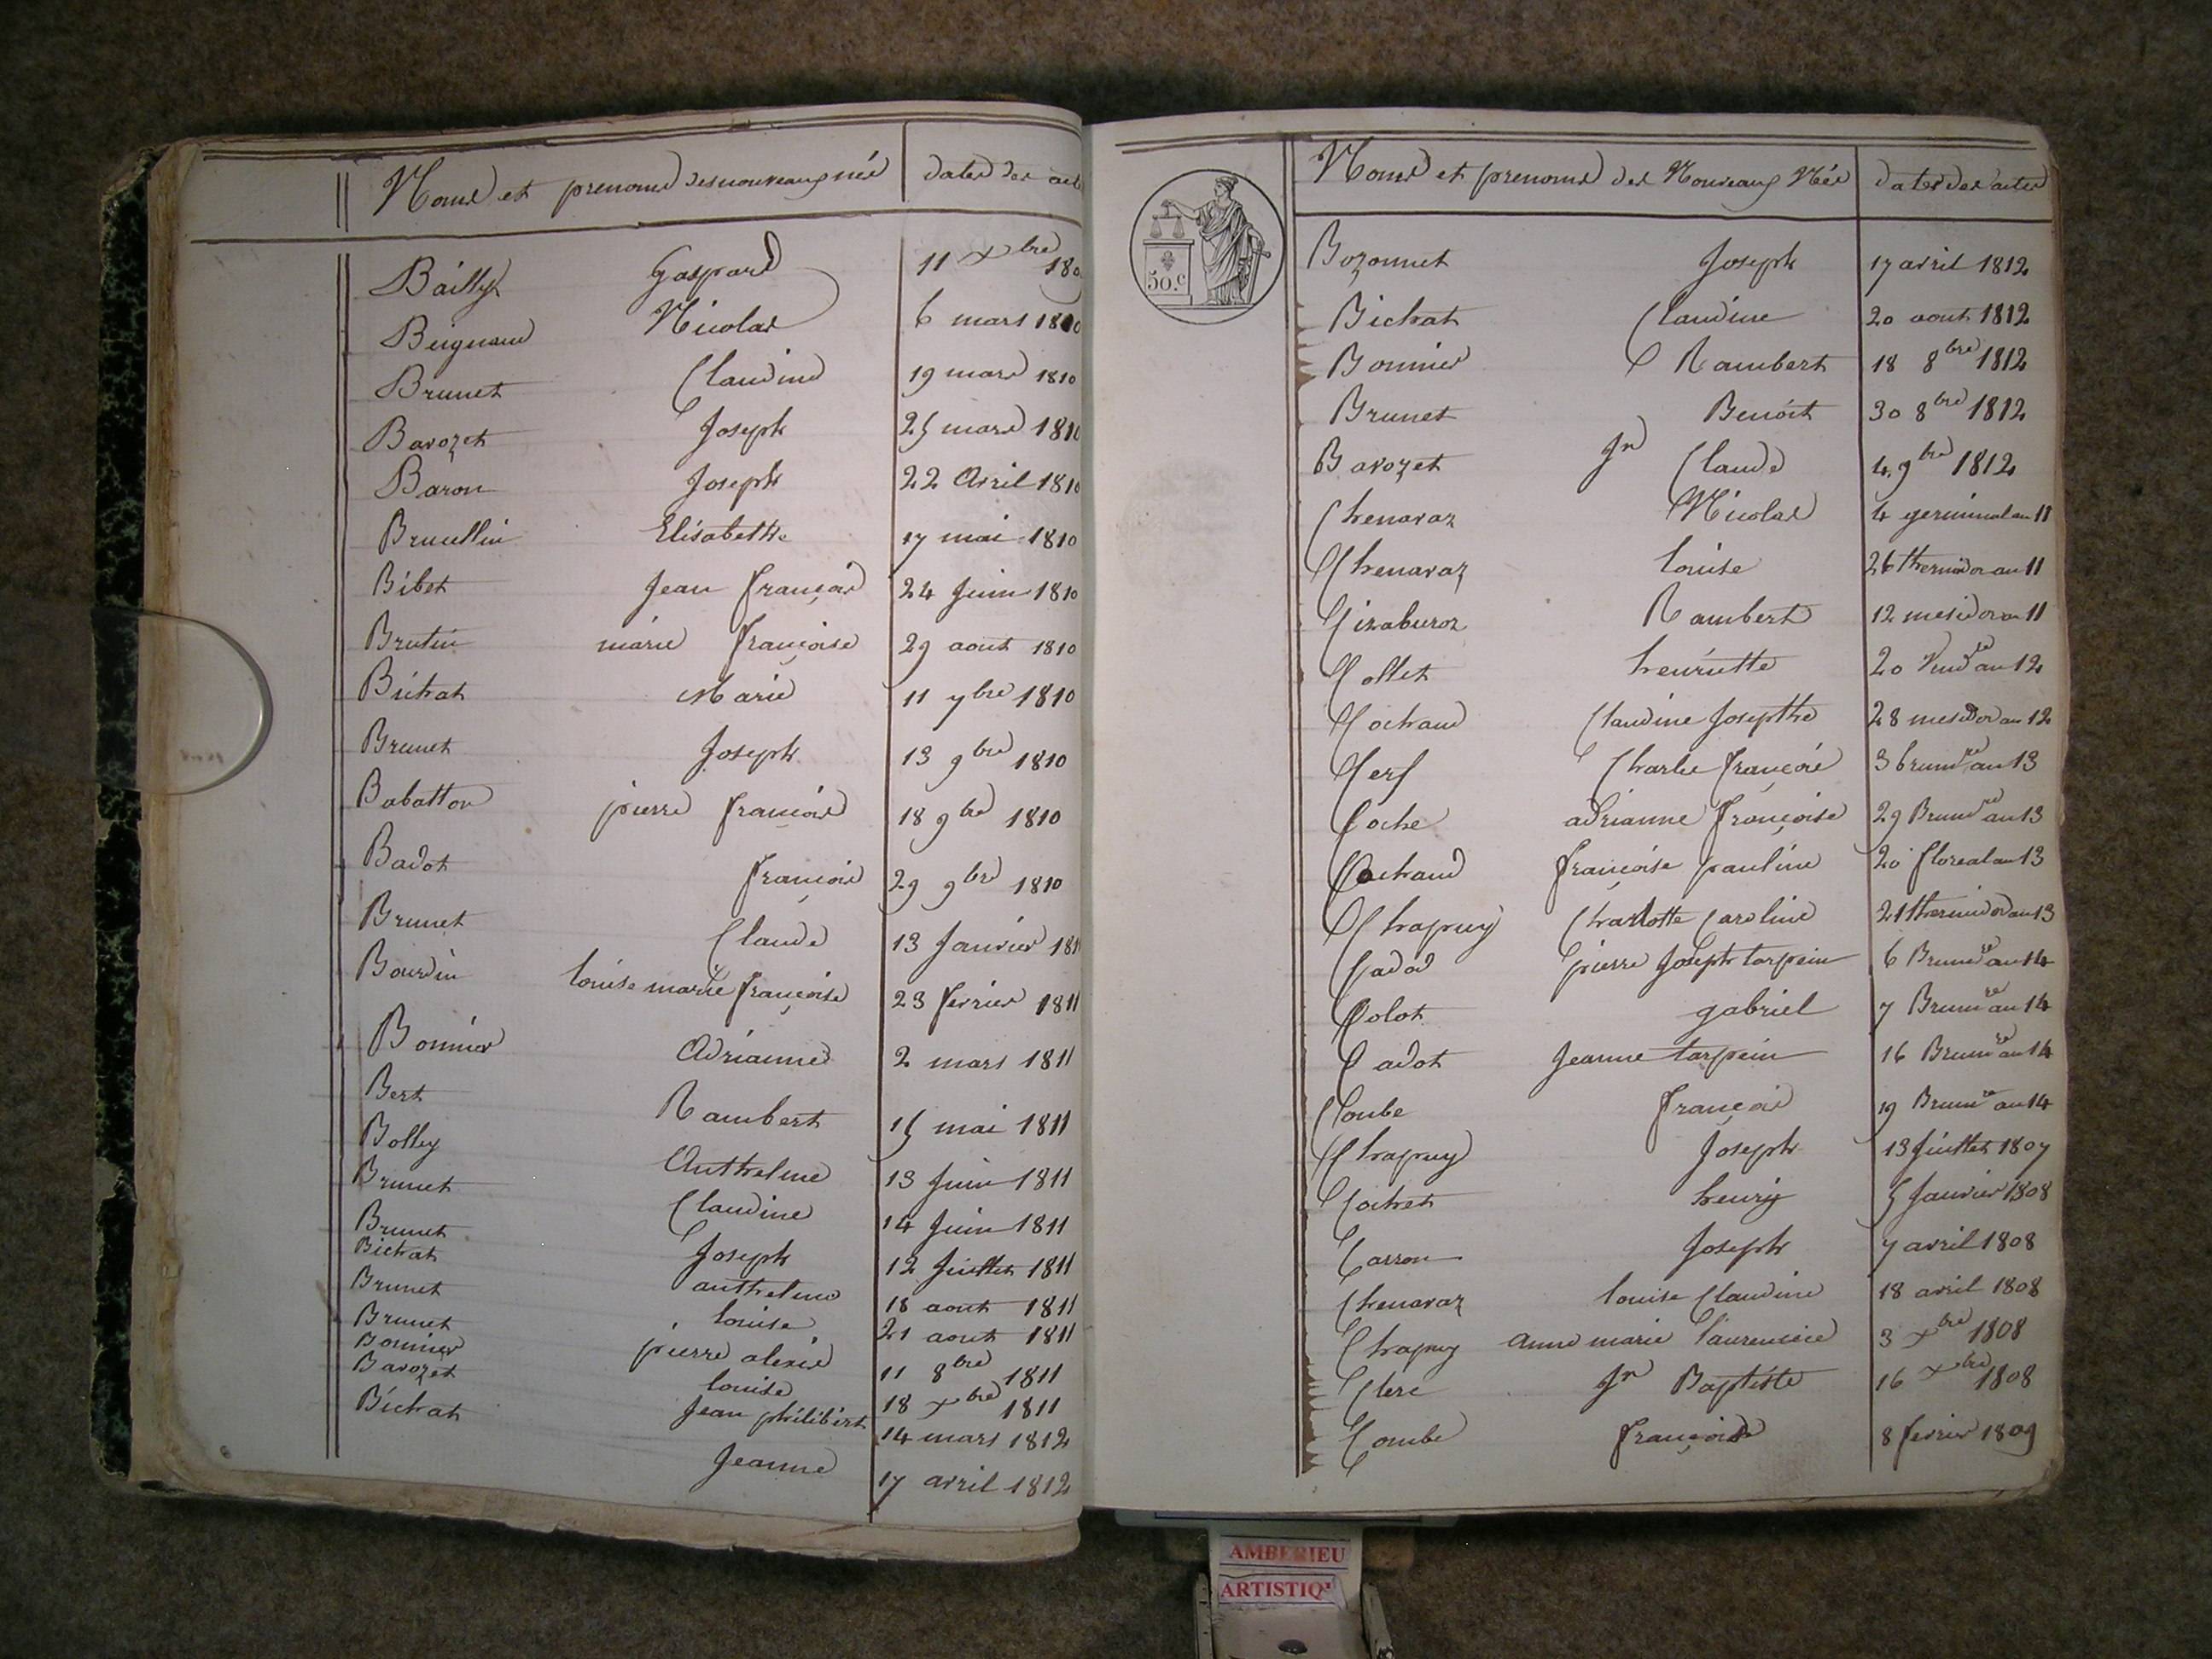 Noms et prenoms des nouveaux nés dates des acte
Bailly Gaspard 11 Xbre 180
Nicolas 6 mars 1810
Brunet Claudine 19 mars 1810
Bavozet Joseph 25 mars 1810
Baron Joseph 22 Avril 1810
Elisabeth 17 mai 1810
Bibet Jean François 24 Juin 1810
Brutin marie françoise 29 aout 1810
Bichat Marie 11 7bre 1810
Brunet Joseph 13 9bre 1810
Babatton pierre françois 18 9bre 1810
Badot françois 29 9bre 1810
Brunet Claude 13 Janvier 1811
Bourdin louise marie françoise 23 fevrier 1811
Bonnier Adrianne 2 mars 1811
Bert Rambert 15 mai 1811
Bolley Anthelme 13 Juin 1811
Brunet Claudine 14 Juin 1811
Brunet Joseph 12 Juillet 1811
Bichat anthelme 18 aout 1811
Brunet louise 21 aout 1811
Brunet pierre alexis 11 8bre 1811
Bonnier louise 18 Xbre 1811
Bavozet Jean philibert 14 mars 1812
Bichat Jeanne 17 avril 1812
Noms et prenoms des Nouveaux Nés dates des actes
50.c
Bozonnet Joseph 17 avril 1812
Bichat Claudine 20 aout 1812
Bonnier Rambert 18 8bre 1812
Brunet Benoit 30 8bre 1812
Bavozet Jn Claude 4 9bre 1812
Chenavaz Nicolas 4 germinal an 11
Chenavaz louise 26 thermidor an 11
Rambert 12 mesidor an 11
Collet henriette 20 Vendre an 12
Cochaud Claudine Josepthe 28 mesidor an 12
Cerf Charle françois 3 brumre an 13
Coche adrianne françoise 29 Brumre an 13
Cochaud françoise pauline 20 floreal an 13
Chapuy Charlotte Caroline 21 thermidor an 13
Cadod pierre Joseph tarpein 6 Brumre an 14
Colot gabriel 7 Brumre an 14
Cadot Jeanne tarpein 16 Brumre an 14
Combe françois 19 Brumre an 14
Chapuy Joseph 13 Juillet 1807
Cochet henry 5 Janvier 1808
Carron Joseph 7 avril 1808
Chenavaz louise Claudine 18 avril 1808
Chapuy anne marie 3 Xbre 1808
Clerc Jn Baptiste 16 Xbre 1808
Combe 8 fevrier 1809
AMBERIEU
ARTISTIQ